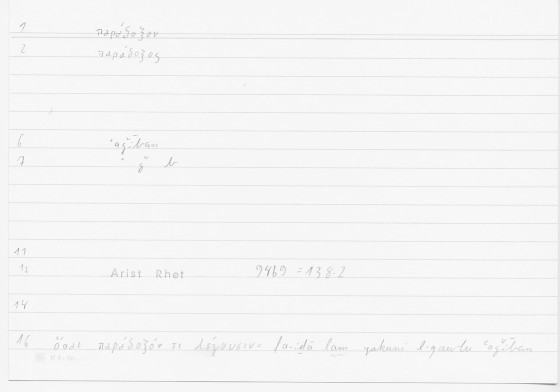 1 παράδοξον
2 παράδοξος
6 ʿaǧīban
7 ʿ ǧ b
11
12 Arist Rhet 9469 = 138.2
14
16 ὅσαι παράδοξόν τι λέγουσιν= fa-iḏā lam yakuni l-qawlu ʿaǧīban